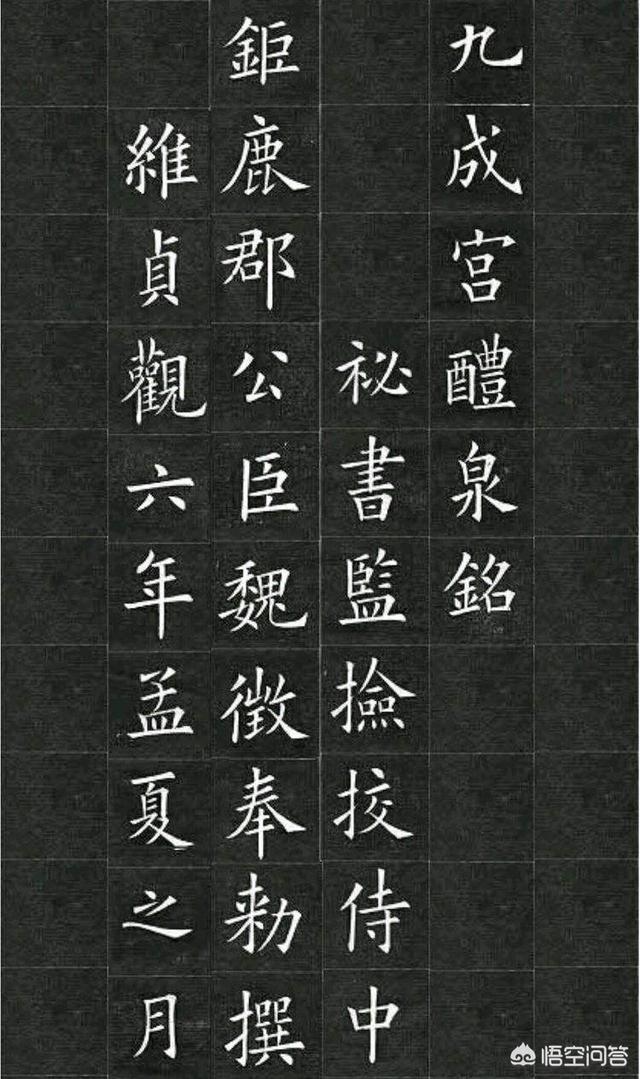 九成宮醴泉銘
祕書監撿挍侍中
鉅鹿郡公臣魏徵奉勑撰
維貞觀六年孟夏之月
悟空问答